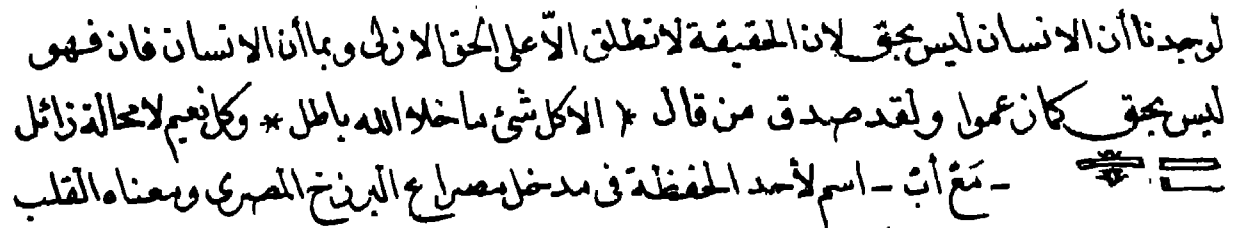 لوجدنا أن الانسان ليس بحق لان الحقيقة لاتطلق الاّ على الحق الازلى وبما أن الانسان فان فهو
ليس بحق كما زعموا ولقد صدق من قال * الاكل شئ ماخلا الله باطل * وكل نعيم لامحالة زائل
ـ مَعْ أبْ ـ اسم لأحد الحفظة فى مدخل مصراع البرزخ المصرى ومعناه القلب